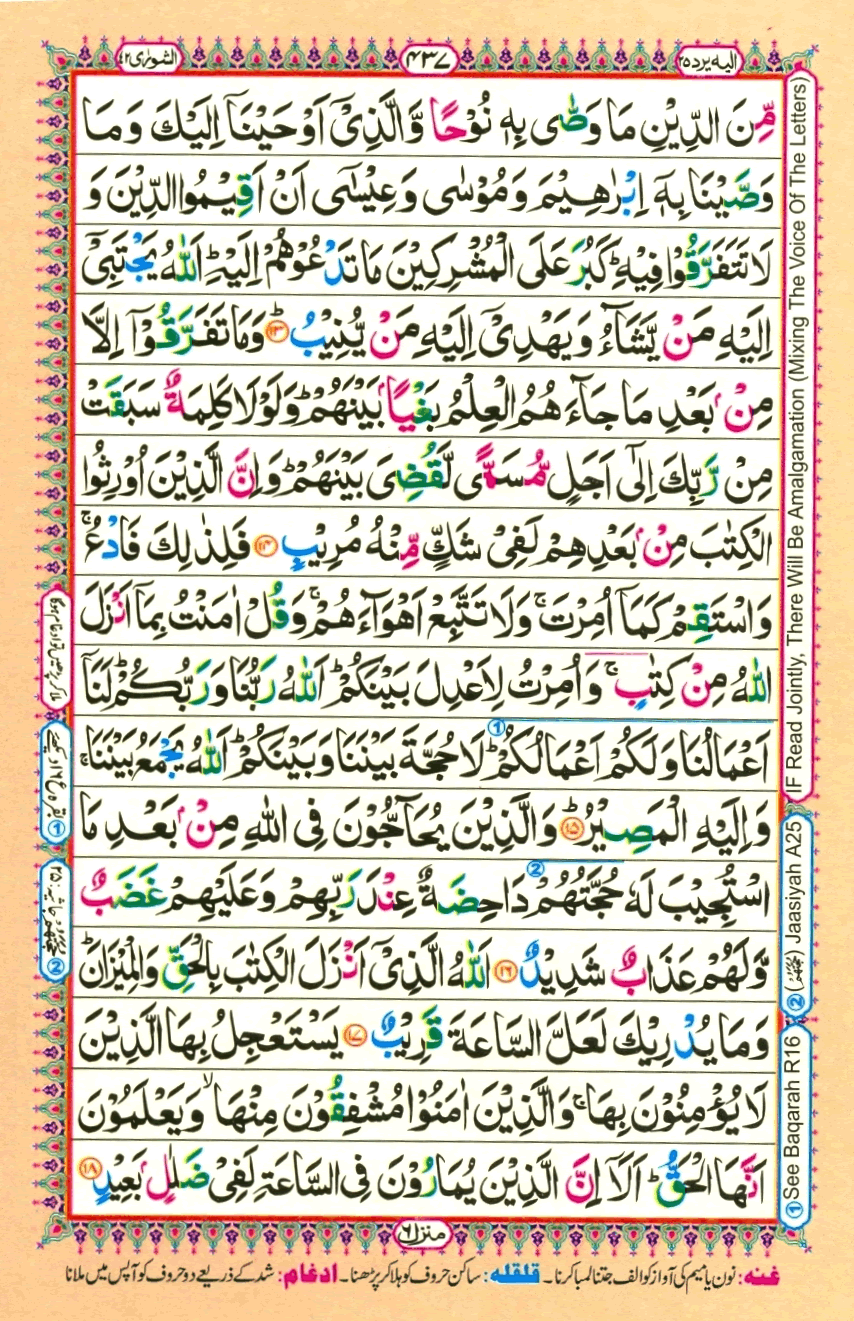 الیه یرد ۲۵
۴۳۷
الشوریٰ ۴۲
مِّنَ الدِّیْنِ مَا وَصّٰی بِهٖ نُوْحًا وَّالَّذِیْۤ اَوْحَیْنَاۤ اِلَیْكَ وَمَا
وَصَّیْنَا بِهٖۤ اِبْرٰهِیْمَ وَمُوْسٰی وَعِیْسٰۤی اَنْ اَقِیْمُوا الدِّیْنَ وَ
لَا تَتَفَرَّقُوْا فِیْهِ ؕ كَبُرَ عَلَی الْمُشْرِكِیْنَ مَا تَدْعُوْهُمْ اِلَیْهِ ؕ اَللّٰهُ یَجْتَبِیْۤ
اِلَیْهِ مَنْ یَّشَآءُ وَیَهْدِیْۤ اِلَیْهِ مَنْ یُّنِیْبُ ؕ۝۱۳ وَمَا تَفَرَّقُوْۤا اِلَّا
مِنْۢ بَعْدِ مَا جَآءَهُمُ الْعِلْمُ بَغْیًۢا بَیْنَهُمْ ؕ وَلَوْلَا كَلِمَةٌ سَبَقَتْ
مِنْ رَّبِّكَ اِلٰۤی اَجَلٍ مُّسَمًّی لَّقُضِیَ بَیْنَهُمْ ؕ وَاِنَّ الَّذِیْنَ اُوْرِثُوا
الْكِتٰبَ مِنْۢ بَعْدِهِمْ لَفِیْ شَكٍّ مِّنْهُ مُرِیْبٍ ۝۱۴ فَلِذٰلِكَ فَادْعُ ۚ
وَاسْتَقِمْ كَمَاۤ اُمِرْتَ ۚ وَلَا تَتَّبِعْ اَهْوَآءَهُمْ ۚ وَقُلْ اٰمَنْتُ بِمَاۤ اَنْزَلَ
اللّٰهُ مِنْ كِتٰبٍ ۚ وَاُمِرْتُ لِاَعْدِلَ بَیْنَكُمْ ؕ اَللّٰهُ رَبُّنَا وَرَبُّكُمْ ؕ لَنَاۤ
اَعْمَالُنَا وَلَكُمْ اَعْمَالُكُمْ ؕ لَا حُجَّةَ بَیْنَنَا وَبَیْنَكُمْ ؕ اَللّٰهُ یَجْمَعُ بَیْنَنَا ۚ
وَاِلَیْهِ الْمَصِیْرُ ؕ۝۱۵ وَالَّذِیْنَ یُحَآجُّوْنَ فِی اللّٰهِ مِنْۢ بَعْدِ مَا
اسْتُجِیْبَ لَهٗ حُجَّتُهُمْ دَاحِضَةٌ عِنْدَ رَبِّهِمْ وَعَلَیْهِمْ غَضَبٌ
وَّلَهُمْ عَذَابٌ شَدِیْدٌ ۝۱۶ اَللّٰهُ الَّذِیْۤ اَنْزَلَ الْكِتٰبَ بِالْحَقِّ وَالْمِیْزَانَ ؕ
وَمَا یُدْرِیْكَ لَعَلَّ السَّاعَةَ قَرِیْبٌ ۝۱۷ یَسْتَعْجِلُ بِهَا الَّذِیْنَ
لَا یُؤْمِنُوْنَ بِهَا ۚ وَالَّذِیْنَ اٰمَنُوْا مُشْفِقُوْنَ مِنْهَا ۙ وَیَعْلَمُوْنَ
اَنَّهَا الْحَقُّ ؕ اَلَاۤ اِنَّ الَّذِیْنَ یُمَارُوْنَ فِی السَّاعَةِ لَفِیْ ضَلٰلٍۭ بَعِیْدٍ ۝۱۸
منزل ۶
غنه: نون یا میم کی آواز کو الف جتنا لمبا کرنا۔ قلقله: ساکن حروف کو ہلا کر پڑھنا۔ ادغام: شد کے ذریعے دو حروف کو آپس میں ملانا
IF Read Jointly, There Will Be Amalgamation (Mixing The Voice Of The Letters)
② Jaasiyah A25
① See Baqarah R16